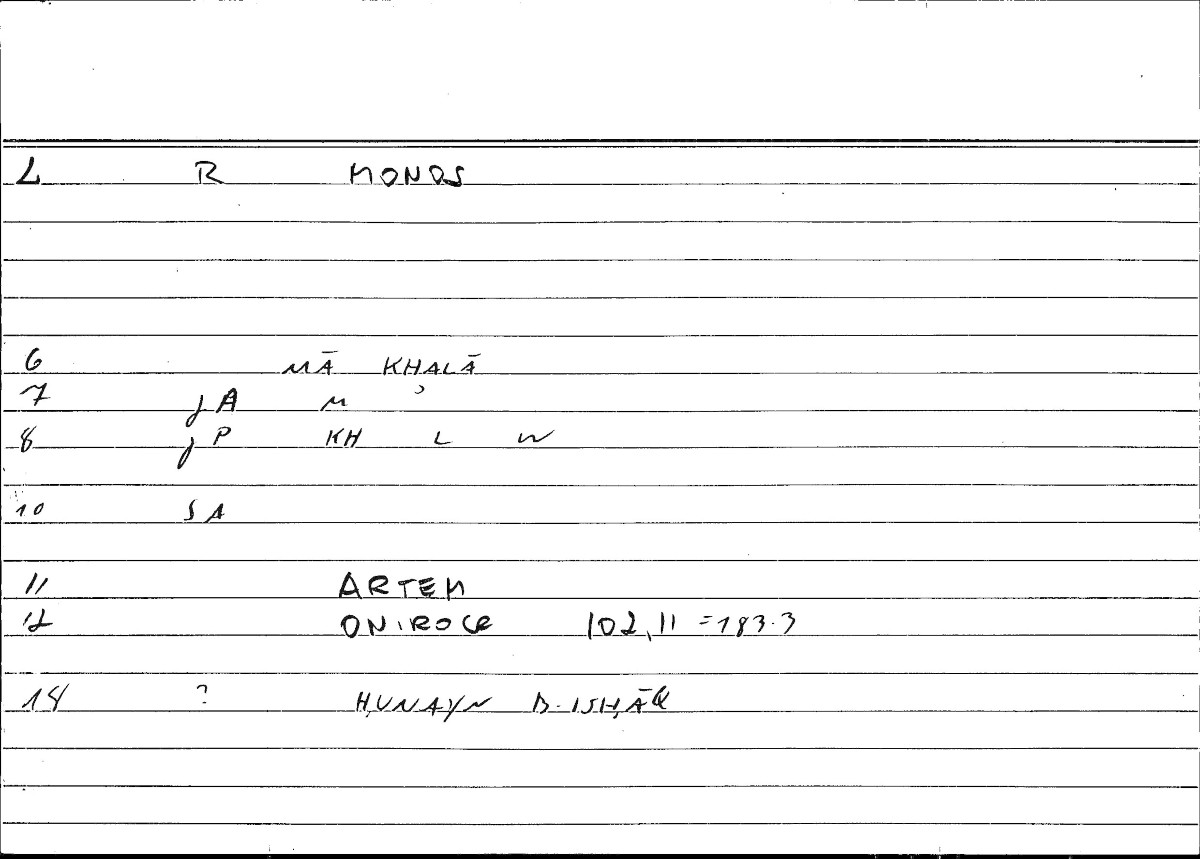 2 R MONOS
6 MĀ KHALĀ
7 jA M ʾ
8 jP KH L W
10 SA
11 ARTEM
12 ONIROCR 102,11 =183.3
14 ? ḤUNAYN B. ISḤĀQ